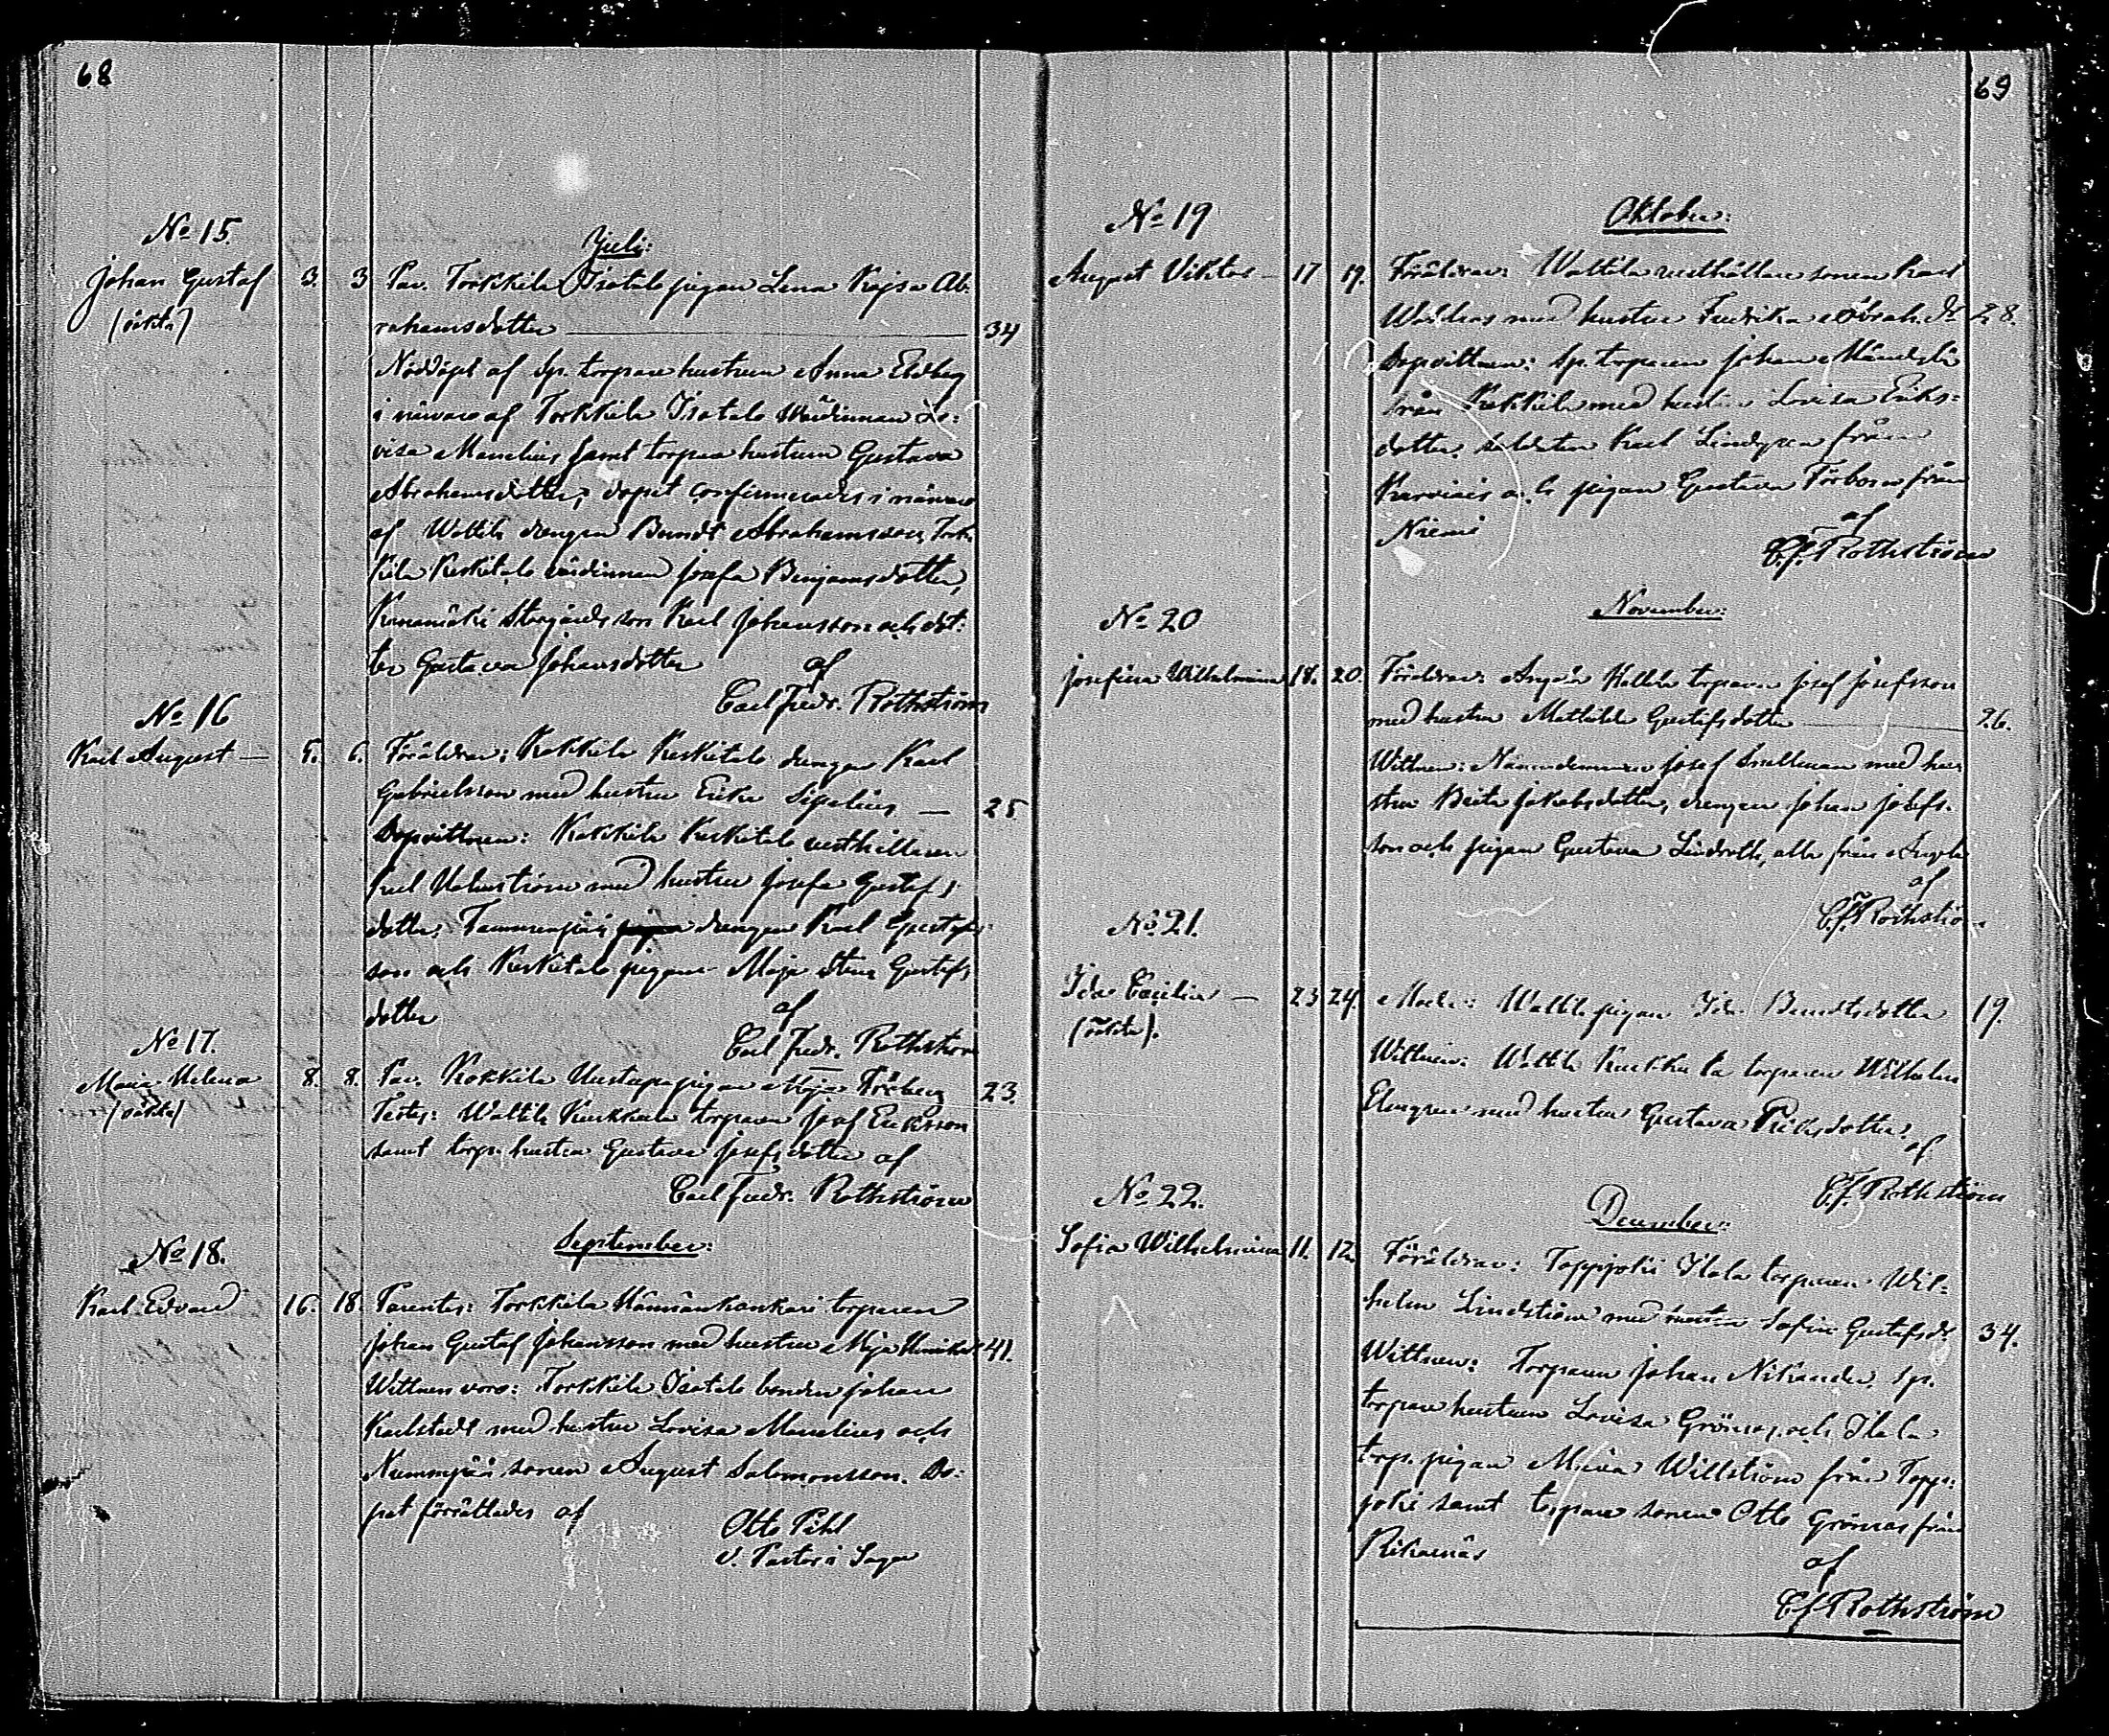 68
No 15.
Juli:
Johan Gustaf 3. 3 Par. Torkkila Isotalo pigan Lena Kajsa Ab-
(oäkta) rahamsdotter 34
Nöddöpt af Sp. torpare hustrun Anna Edberg
i närvaro af Torkkila Isotalo Wärdinnan Lo-
visa Manelius samt torpare hustrun Gustava
Abrahamsdotter, dopet confirmerades i närvaro
af Wattila drengen Berndt Abrahamsson, Tork-
kila Keskitalo värdinnan Josefa Benjamsdotter,
Storgårds son Karl Johansson och dot-
ter Gustava Johansdotter af
Carl Fredr. Rothström
No 16
Karl August 5. 6. Föräldrar: Kokkila Keskitalo drengen Karl
Gabrielsson med hustru Erika Sigelius 25
Dopvittnen: Kokkila Keskitalo rusthållaren
med hustru Josefa Gustafs-
dotter, drengen Karl Gustafs-
son och Keskitalo pigan Maja Stina Gustafs
dotter af
Carl Fredr. Rothström
No 17.
Maria Helena 8. 8. Par. Kokkila pigan Maja Fröberg 23.
(oäkta) Testes: Wattila torparen Josef Eriksson
samt torp. hustru Gustava Josefsdotter af
Carl Fredr. Rothström
September:
No 18.
Karl Edvard 16. 18. Parentes: Torkkila torparen
Johan Gustaf Johansson med hustru Maja 41.
Wittnen voro: Torkkila Isotalo bonden Johan
Karlstedt med hustru Lovisa Manelius och
Nummenpää sonen August Salomonsson. Do-
pet förrättades af
Otto Pihl
V. Pastor i Sagu
69
No 19
Oktober:
August Viktor 17 19. Föräldrar: Wattila rusthållare sonen Karl
med hustru Fredrika Abrah. dr 28.
Dopvittnen: Sp. torparen Johan
från Kokkila med hustru Lovisa Eriks-
dotter, soldaten Karl Lindgren från
och pigan Gustava från
Niemi af
C.f. Rothström
November:
No 20
Josefina Wilhelmina 18. 20. Föräldrar: Angela torparen Josef Josefsson
med hustru Mathilda Gustafsdotter 26.
Wittnen: Nämndemannen Josef Snellman med hu-
stru Brita Jakobsdotter, drengen Johan Josefs-
son och pigan Gustava Lindroth, alla från Angela
af
C.f. Rothström
No 21.
Ida Cecilia 23 24. Moder: Wattila pigan Ida Berndtsdotter 19.
(oäkta). Wittnen: Wattila torparen Wilhelm
Elmgren med hustru Gustava Eriksdotter.
af
C.f. Rothström
No 22.
December:
Sofia Wilhelmina 11. 12. Föräldrar: Toppjoki Ylala torparen Wil-
helm Lindström med hustru Sofia Gustafsdr 34.
Wittnen: Torparen Johan Nikander, Sp.
torpare hustrun Lovisa Grönros, och Ylala
torp. pigan Maria Willström från Topp-
joki samt torpare sonen Otto Grönros från
af
C.f. Rothström